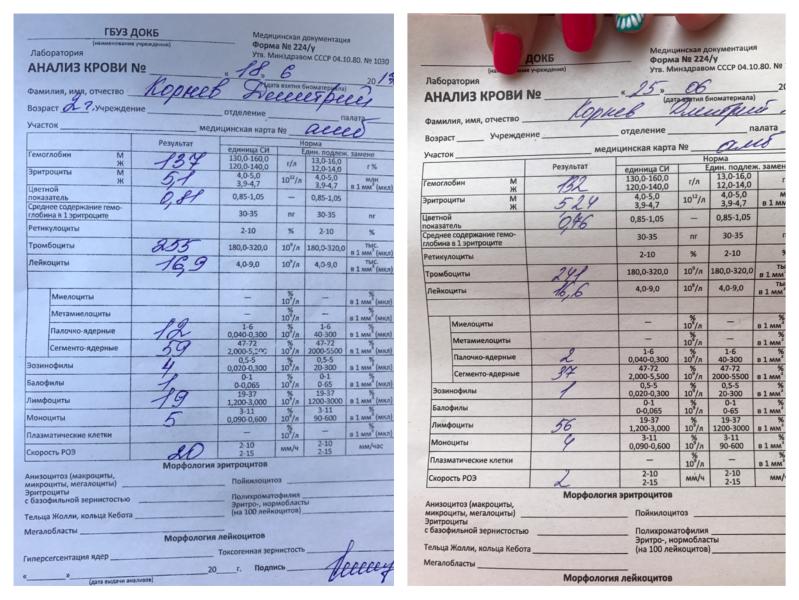 ГБУЗ ДОКБ
(наименование учреждения)
Медицинская документация
Форма № 224/у
Утв. Минздравом СССР 04.10.80. № 1030
Лаборатория
АНАЛИЗ КРОВИ № « 18 » 6 20
(дата взятия биоматериала)
Фамилия, имя, отчество Корнев Дмитрий
Возраст 2 г. Учреждение отделение палата
Участок медицинская карта № амб
Результат Норма
единица СИ Един. подлеж. замене
Гемоглобин М Ж 137 130,0-160,0 120,0-140,0 г/л 13,0-16,0 12,0-14,0 г %
Эритроциты М Ж 5,1 4,0-5,0 3,9-4,7 10¹²/л 4,0-5,0 3,9-4,7 млн в 1 мм³ (мкл)
Цветной показатель 0,81 0,85-1,05 — 0,85-1,05
Среднее содержание гемоглобина в 1 эритроците 30-35 пг 30-35 пг
Ретикулоциты 2-10 % 2-10 %
Тромбоциты 255 180,0-320,0 10⁹/л 180,0-320,0 тыс. в 1 мм³ (мкл)
Лейкоциты 16,9 4,0-9,0 10⁹/л 4,0-9,0 тыс. в 1 мм³ (мкл)
Миелоциты — % 10⁹/л — % в 1 мм³ (мкл)
Метамиелоциты — % 10⁹/л — % в 1 мм³ (мкл)
Палочко-ядерные 12 1-6 0,040-0,300 % 10⁹/л 1-6 40-300 % в 1 мм³ (мкл)
Сегменто-ядерные 59 47-72 2,000-5,500 % 10⁹/л 47-72 2000-5500 % в 1 мм³ (мкл)
Эозинофилы 4 0,5-5 0,020-0,300 % 10⁹/л 0,5-5 20-300 % в 1 мм³ (мкл)
Балофилы 1 0-1 0-0,065 % 10⁹/л 0-1 0-65 % в 1 мм³ (мкл)
Лимфоциты 19 19-37 1,200-3,000 % 10⁹/л 19-37 1200-3000 % в 1 мм³ (мкл)
Моноциты 5 3-11 0,090-0,600 % 10⁹/л 3-11 90-600 % в 1 мм³ (мкл)
Плазматические клетки — % 10⁹/л — % в 1 мм³ (мкл)
Скорость РОЭ 20 2-10 2-15 мм/ч 2-10 2-15 мм/час
Морфология эритроцитов
Анизоцитоз (макроциты, микроциты, мегалоциты) Пойкилоцитоз
Эритроциты с базофильной зернистостью Полихроматофилия
Эритро-, нормобласты (на 100 лейкоцитов)
Тельца Жолли, кольца Кебота
Мегалобласты
Морфология лейкоцитов
Гиперсегсентация ядер Токсогенная зернистость
« » 20 г. Подпись
(дата выдачи анализов)
ДОКБ
учреждения)
Медицинская документация
Форма № 224/у
Утв. Минздравом СССР 04.10.80. №
Лаборатория
АНАЛИЗ КРОВИ № « 25 » 06 20
(дата взятия биоматериала)
Фамилия, имя, отчество Корнев Дмитрий
Возраст Учреждение отделение палата
Участок медицинская карта № амб
Результат Норма
единица СИ Един. подлеж. замене
Гемоглобин М Ж 132 130,0-160,0 120,0-140,0 г/л 13,0-16,0 12,0-14,0
Эритроциты М Ж 5,24 4,0-5,0 3,9-4,7 10¹²/л 4,0-5,0 3,9-4,7 в 1 мм³
Цветной показатель 0,76 0,85-1,05 — 0,85-1,05
Среднее содержание гемоглобина в 1 эритроците 30-35 пг 30-35 пг
Ретикулоциты 2-10 % 2-10 %
Тромбоциты 241 180,0-320,0 10⁹/л 180,0-320,0 в 1 мм³
Лейкоциты 16,6 4,0-9,0 10⁹/л 4,0-9,0 в 1 мм³
Миелоциты — % 10⁹/л — % в 1 мм³
Метамиелоциты — % 10⁹/л — % в 1 мм³
Палочко-ядерные 2 1-6 0,040-0,300 % 10⁹/л 1-6 40-300 % в 1 мм³
Сегменто-ядерные 37 47-72 2,000-5,500 % 10⁹/л 47-72 2000-5500 % в 1 мм³
Эозинофилы 1 0,5-5 0,020-0,300 % 10⁹/л 0,5-5 20-300 % в 1 мм³
Балофилы 0-1 0-0,065 % 10⁹/л 0-1 0-65 % в 1 мм³
Лимфоциты 56 19-37 1,200-3,000 % 10⁹/л 19-37 1200-3000 % в 1 мм³
Моноциты 4 3-11 0,090-0,600 % 10⁹/л 3-11 90-600 % в 1 мм³
Плазматические клетки — % 10⁹/л — % в 1 мм³
Скорость РОЭ 2 2-10 2-15 мм/ч 2-10 2-15 мм/час
Морфология эритроцитов
Анизоцитоз (макроциты, микроциты, мегалоциты) Пойкилоцитоз
Эритроциты с базофильной зернистостью Полихроматофилия
Эритро-, нормобласты (на 100 лейкоцитов)
Тельца Жолли, кольца Кебота
Мегалобласты
Морфология лейкоцитов